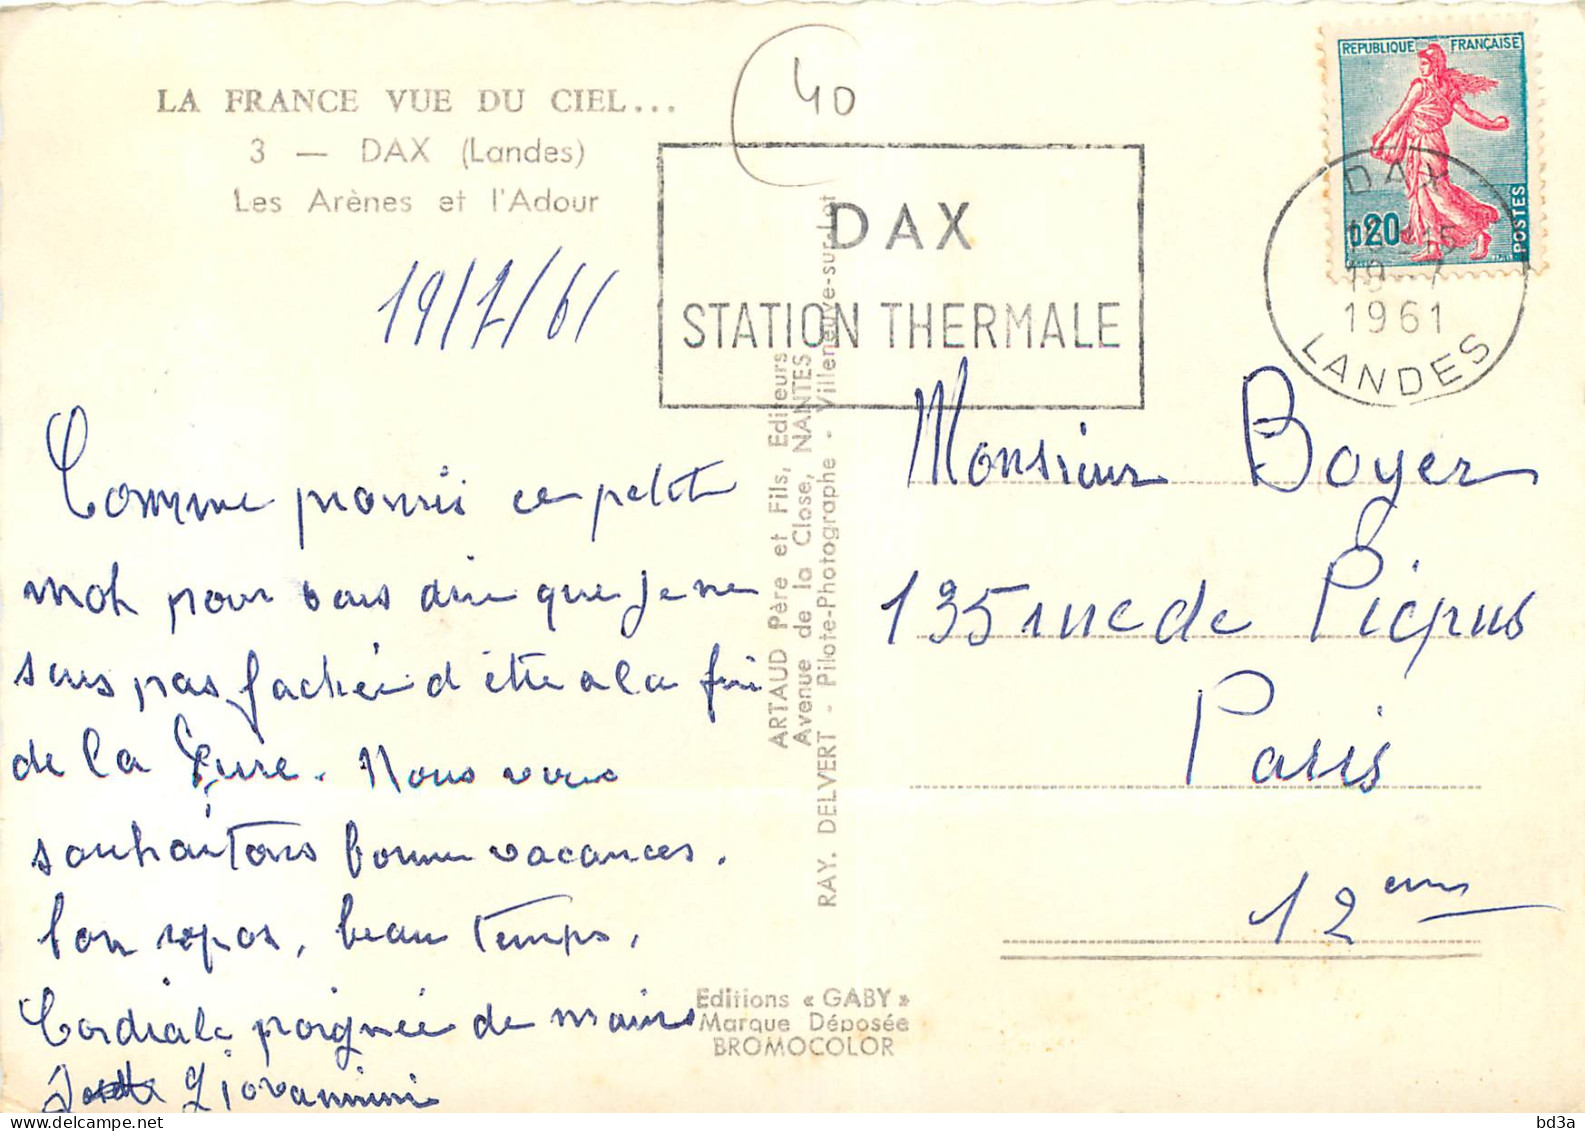 LA FRANCE VUE DU CIEL...
3 — DAX (Landes)
Les Arènes et l'Adour
40
DAX
STATION THERMALE
REPUBLIQUE FRANÇAISE
0,20
POSTES
DAX
1961
LANDES
19/7/61
Comme promis ce petit
mot pour vous dire que je ne
suis pas fachée d'être a la fin
de la Cure. Nous vous
souhaitons bonne vacances.
bon repos, beau temps.
Cordiale poignée de mains
Giovannini
ARTAUD Père et Fils, Editeurs
Avenue de la Close, NANTES
RAY. DELVERT - Pilote-Photographe - Villeneuve-sur-Lot
Monsieur Boyer
135 rue de Picpus
Paris
12 eme
Editions « GABY »
Marque Déposée
BROMOCOLOR
www.delcampe.net
bd3a